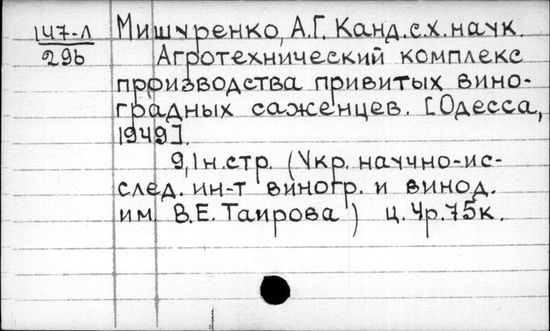 147-Л Мишуренко, А.Г. Канд.с.х.наук.
296 Агротехнический комплекс
производства привитых вино-
градных саженцев. [Одесса,
1949].
9,1н.стр. (Укр.научно-ис-
след. ин-т виногр. и винод.
им. В.Е. Таирова) ц. 4р.75к.